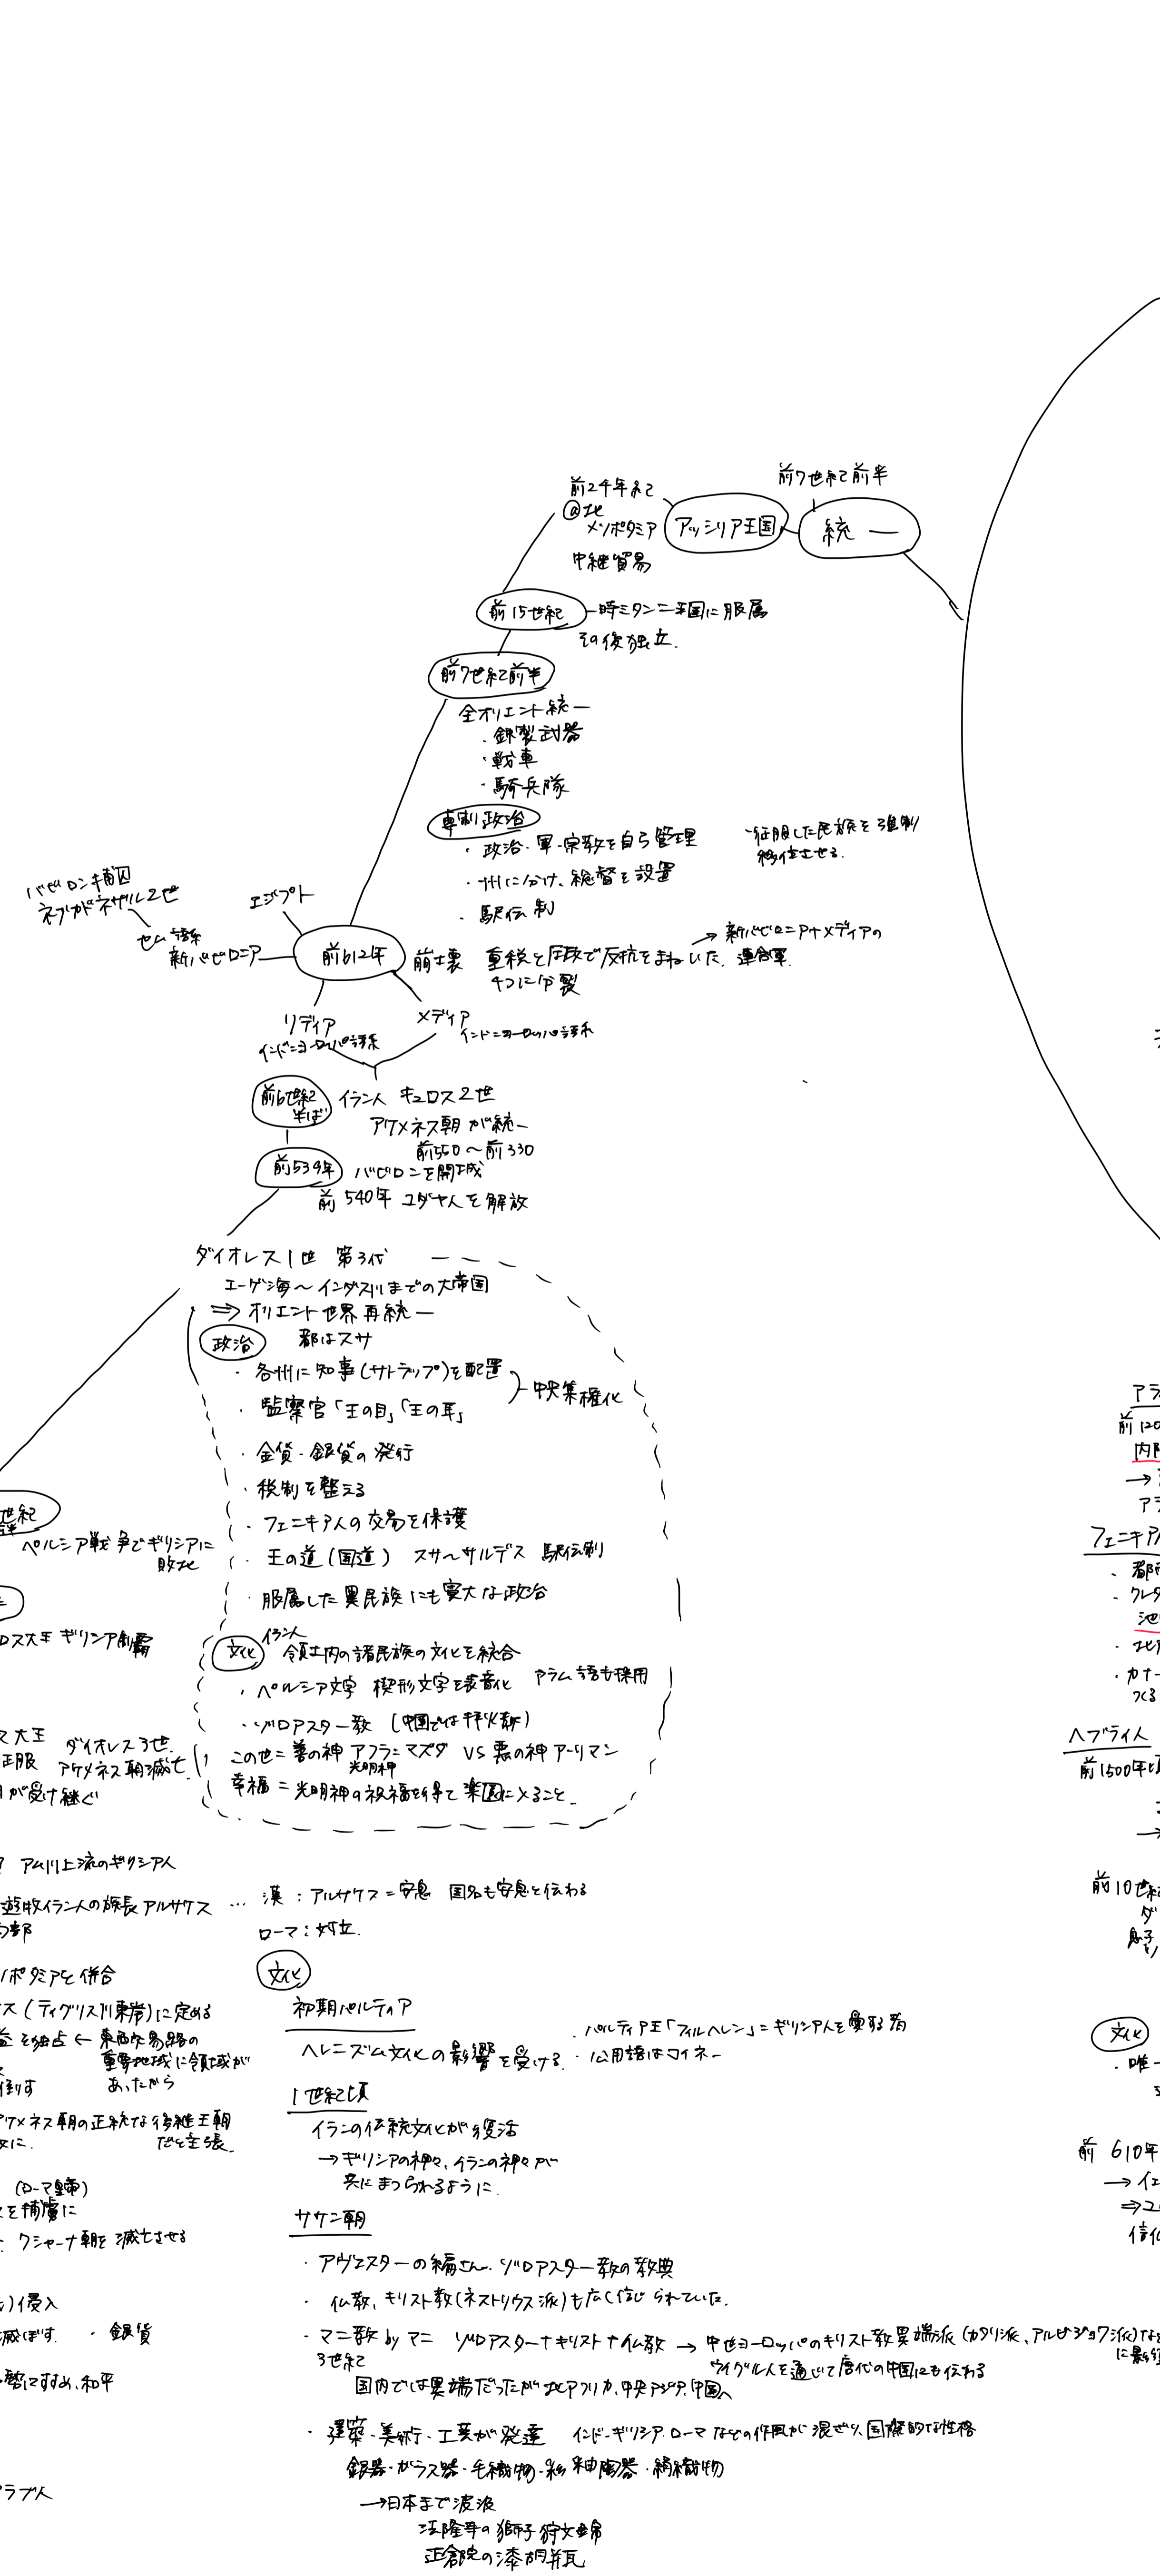 前7世紀前半
統一
アッシリア王国
前2千年紀
@北
メソポタミア
中継貿易
前15世紀
一時ミタンニ王国に服属
その後独立.
前7世紀前半
全オリエント統一
・鉄製武器
・戦車
・騎兵隊
専制政治
・政治・軍・宗教を自ら管理
・征服した民族を強制
移住させる.
・州に分け、総督を設置
・駅伝制
バビロン捕囚
ネブカドネザル2世
セム語系
新バビロニア
エジプト
前612年
崩壊 重税と圧政で反抗をまねいた.
→新バビロニア+メディアの
連合軍.
4つに分裂
リディア
インド=ヨーロッパ語系
メディア
インド=ヨーロッパ語系
前6世紀
半ば
イラン人 キュロス2世
アケメネス朝が統一
前550〜前330
前539年
バビロンを開城
前540年 ユダヤ人を解放
ダイオレス1世 第3代
エーゲ海〜インダス川までの大帝国
⇒ オリエント世界再統一
政治
都はスサ
・各州に知事(サトラップ)を配置
・監察官「王の目」「王の耳」
中央集権化
・金貨・銀貨の発行
・税制を整える
・フェニキア人の交易を保護
・王の道(国道) スサ〜サルデス 駅伝制
・服属した異民族にも寛大な政治
文化
イラン人
領土内の諸民族の文化を統合
・ペルシア文字 楔形文字を表音化 アラム語も採用
・ゾロアスター教 (中国では祆教)
この世=善の神 アフラ=マズダ VS 悪の神 アーリマン
光明神
幸福=光明神の祝福を得て楽園に入ること.
世紀
ペルシア戦争でギリシアに
敗北
ロス大王 ギリシア制覇
ス大王 ダイオレス3世.
正服 アケメネス朝滅亡.
が受け継ぐ
アム川上流のギリシア人
遊牧イラン人の族長アルサケス … 漢:アルサケス=安息 国名も安息と伝わる
ローマ:対立.
ポタミアを併合
ス(ティグリス川東岸)に定める
益を独占 ← 東西交易路の
重要地域に領域が
あったから
倒す
アケメネス朝の正統な後継王朝
だと主張.
(ローマ皇帝)
を捕虜に
クシャーナ朝を滅亡させる
)侵入
滅ぼす. ・銀貨
勢にすすめ、和平
ラブ人
文化
初期パルティア
ヘレニズム文化の影響を受ける.
・パルティア王「フィルヘレン」=ギリシア人を愛する者
・公用語はコイネー
1世紀頃
イランの伝統文化が復活
→ギリシアの神々、イランの神々が
共にまつられるように.
ササン朝
・アヴェスターの編さん. ゾロアスター教の教典
・仏教、キリスト教(ネストリウス派)も広く信じられていた.
・マニ教 by マニ ゾロアスター+キリスト+仏教 → 中世ヨーロッパのキリスト教異端派(カタリ派、アルビジョワ派)など
に影響
3世紀
ウイグル人を通じて唐代の中国にも伝わる
国内では異端だったが北アフリカ、中央アジア、中国へ
・建築・美術・工芸が発達 インド・ギリシア・ローマなどの作風が混ざり、国際的な性格
銀器・ガラス器・毛織物・彩釉陶器・絹織物
→日本まで波及
法隆寺の獅子狩文錦
正倉院の漆胡瓶
アラ
前120
内陸
フェニキア人
・都市
・クレタ
・北ア
・カナー
つくる
ヘブライ人
前1500年頃
前10世紀
ダ
息子
文化
・唯一
前 610年
→ イェ
⇒ユ
信仰